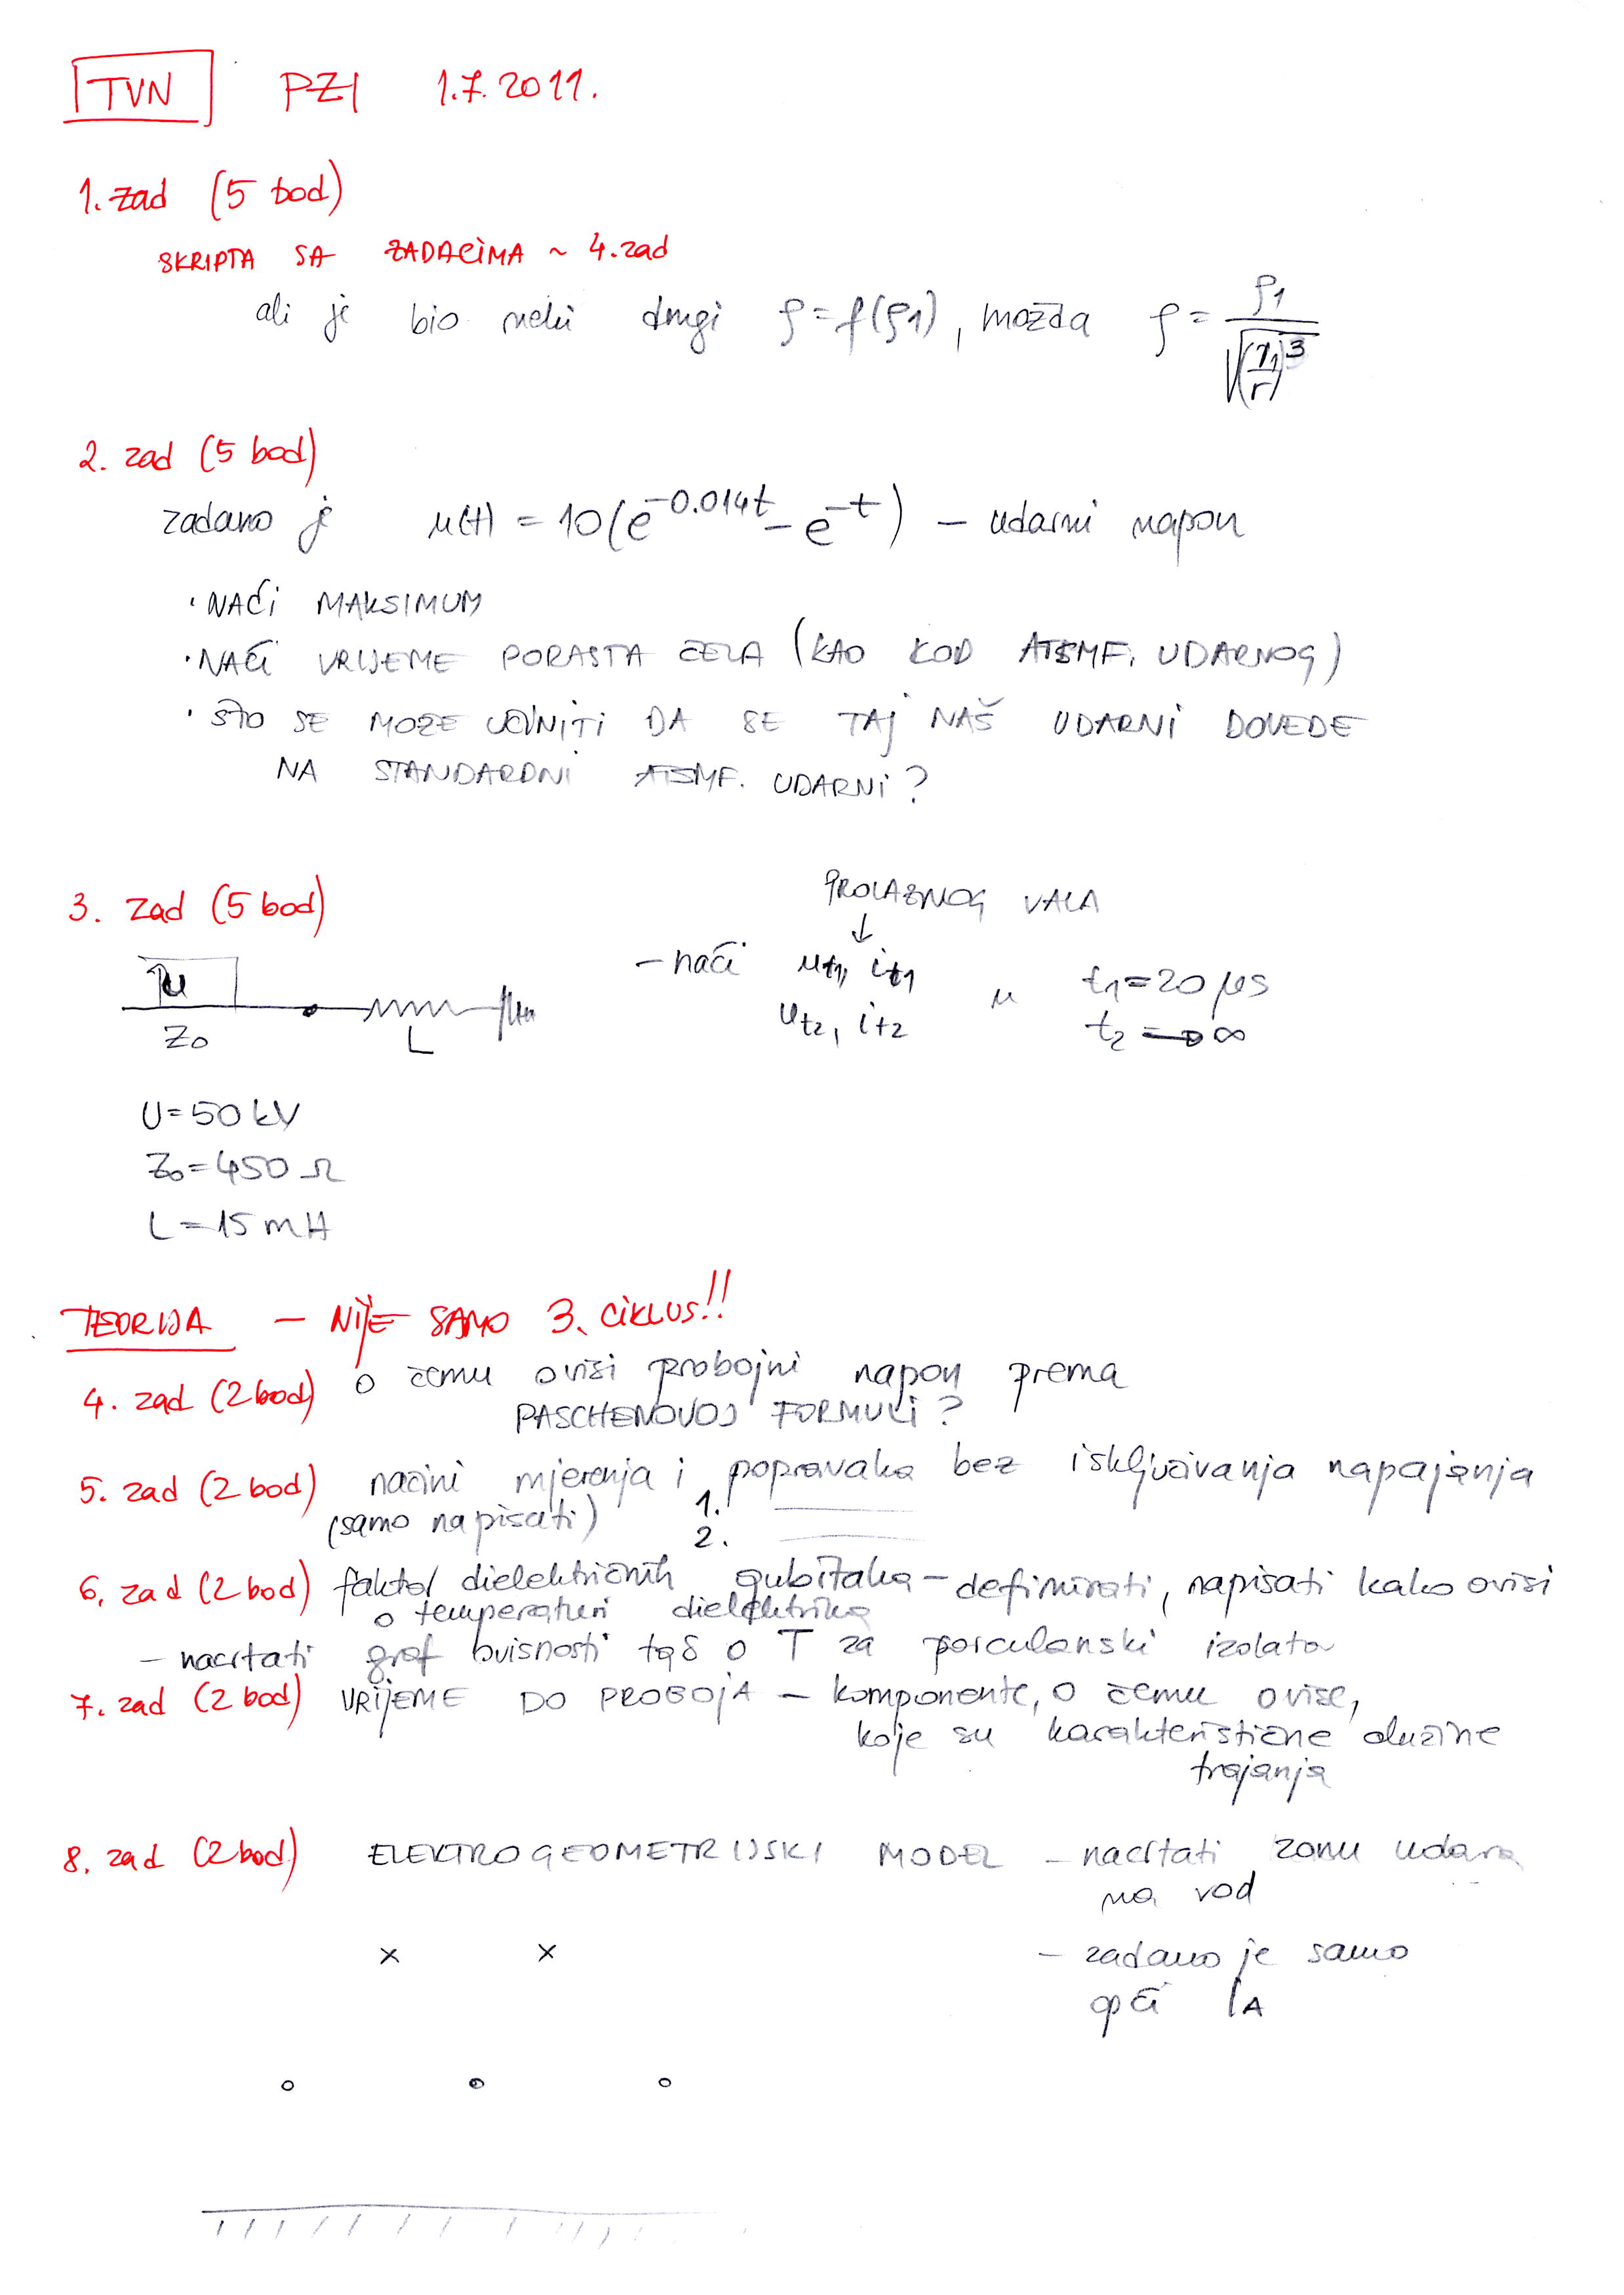 TVN PZI 1.7.2011.
1. zad (5 bod)
SKRIPTA SA ZADACIMA ~ 4. zad
ali je bio neki drugi ρ = f(ρ1), možda ρ = ρ1/√((r1/r)^3)
2. zad (5 bod)
zadano je u(t) = 10(e^-0.014t - e^-t) – udarni napon
· NAĆI MAKSIMUM
· NAĆI VRIJEME PORASTA ČELA (KAO KOD ATSMF. UDARNOG)
· ŠTO SE MOŽE UČINITI DA SE TAJ NAŠ UDARNI DOVEDE
NA STANDARDNI ATSMF. UDARNI?
3. zad (5 bod)
PROLAZNOG VALA
↓
u
– naći ut1, it1 u t1 = 20 μs
ut2, it2 t2 → ∞
Z0 L
U = 50 kV
Z0 = 450 Ω
L = 15 mH
TEORIJA – NIJE SAMO 3. CIKLUS!!
4. zad (2 bod) o čemu ovisi probojni napon prema
PASCHENOVOJ FORMULI?
5. zad (2 bod) načini mjerenja i popravaka bez isključivanja napajanja
(samo napisati) 1.
2.
6. zad (2 bod) faktor dielektričnih gubitaka – definirati, napisati kako ovisi
o temperaturi dielektrika
– nacrtati graf ovisnosti tgδ o T za porculanski izolator
7. zad (2 bod) VRIJEME DO PROBOJA – komponente, o čemu ovise,
koje su karakteristične dužine
trajanja
8. zad (2 bod) ELEKTROGEOMETRIJSKI MODEL – nacrtati zonu udara
na vod
x x – zadano je samo
opći IA